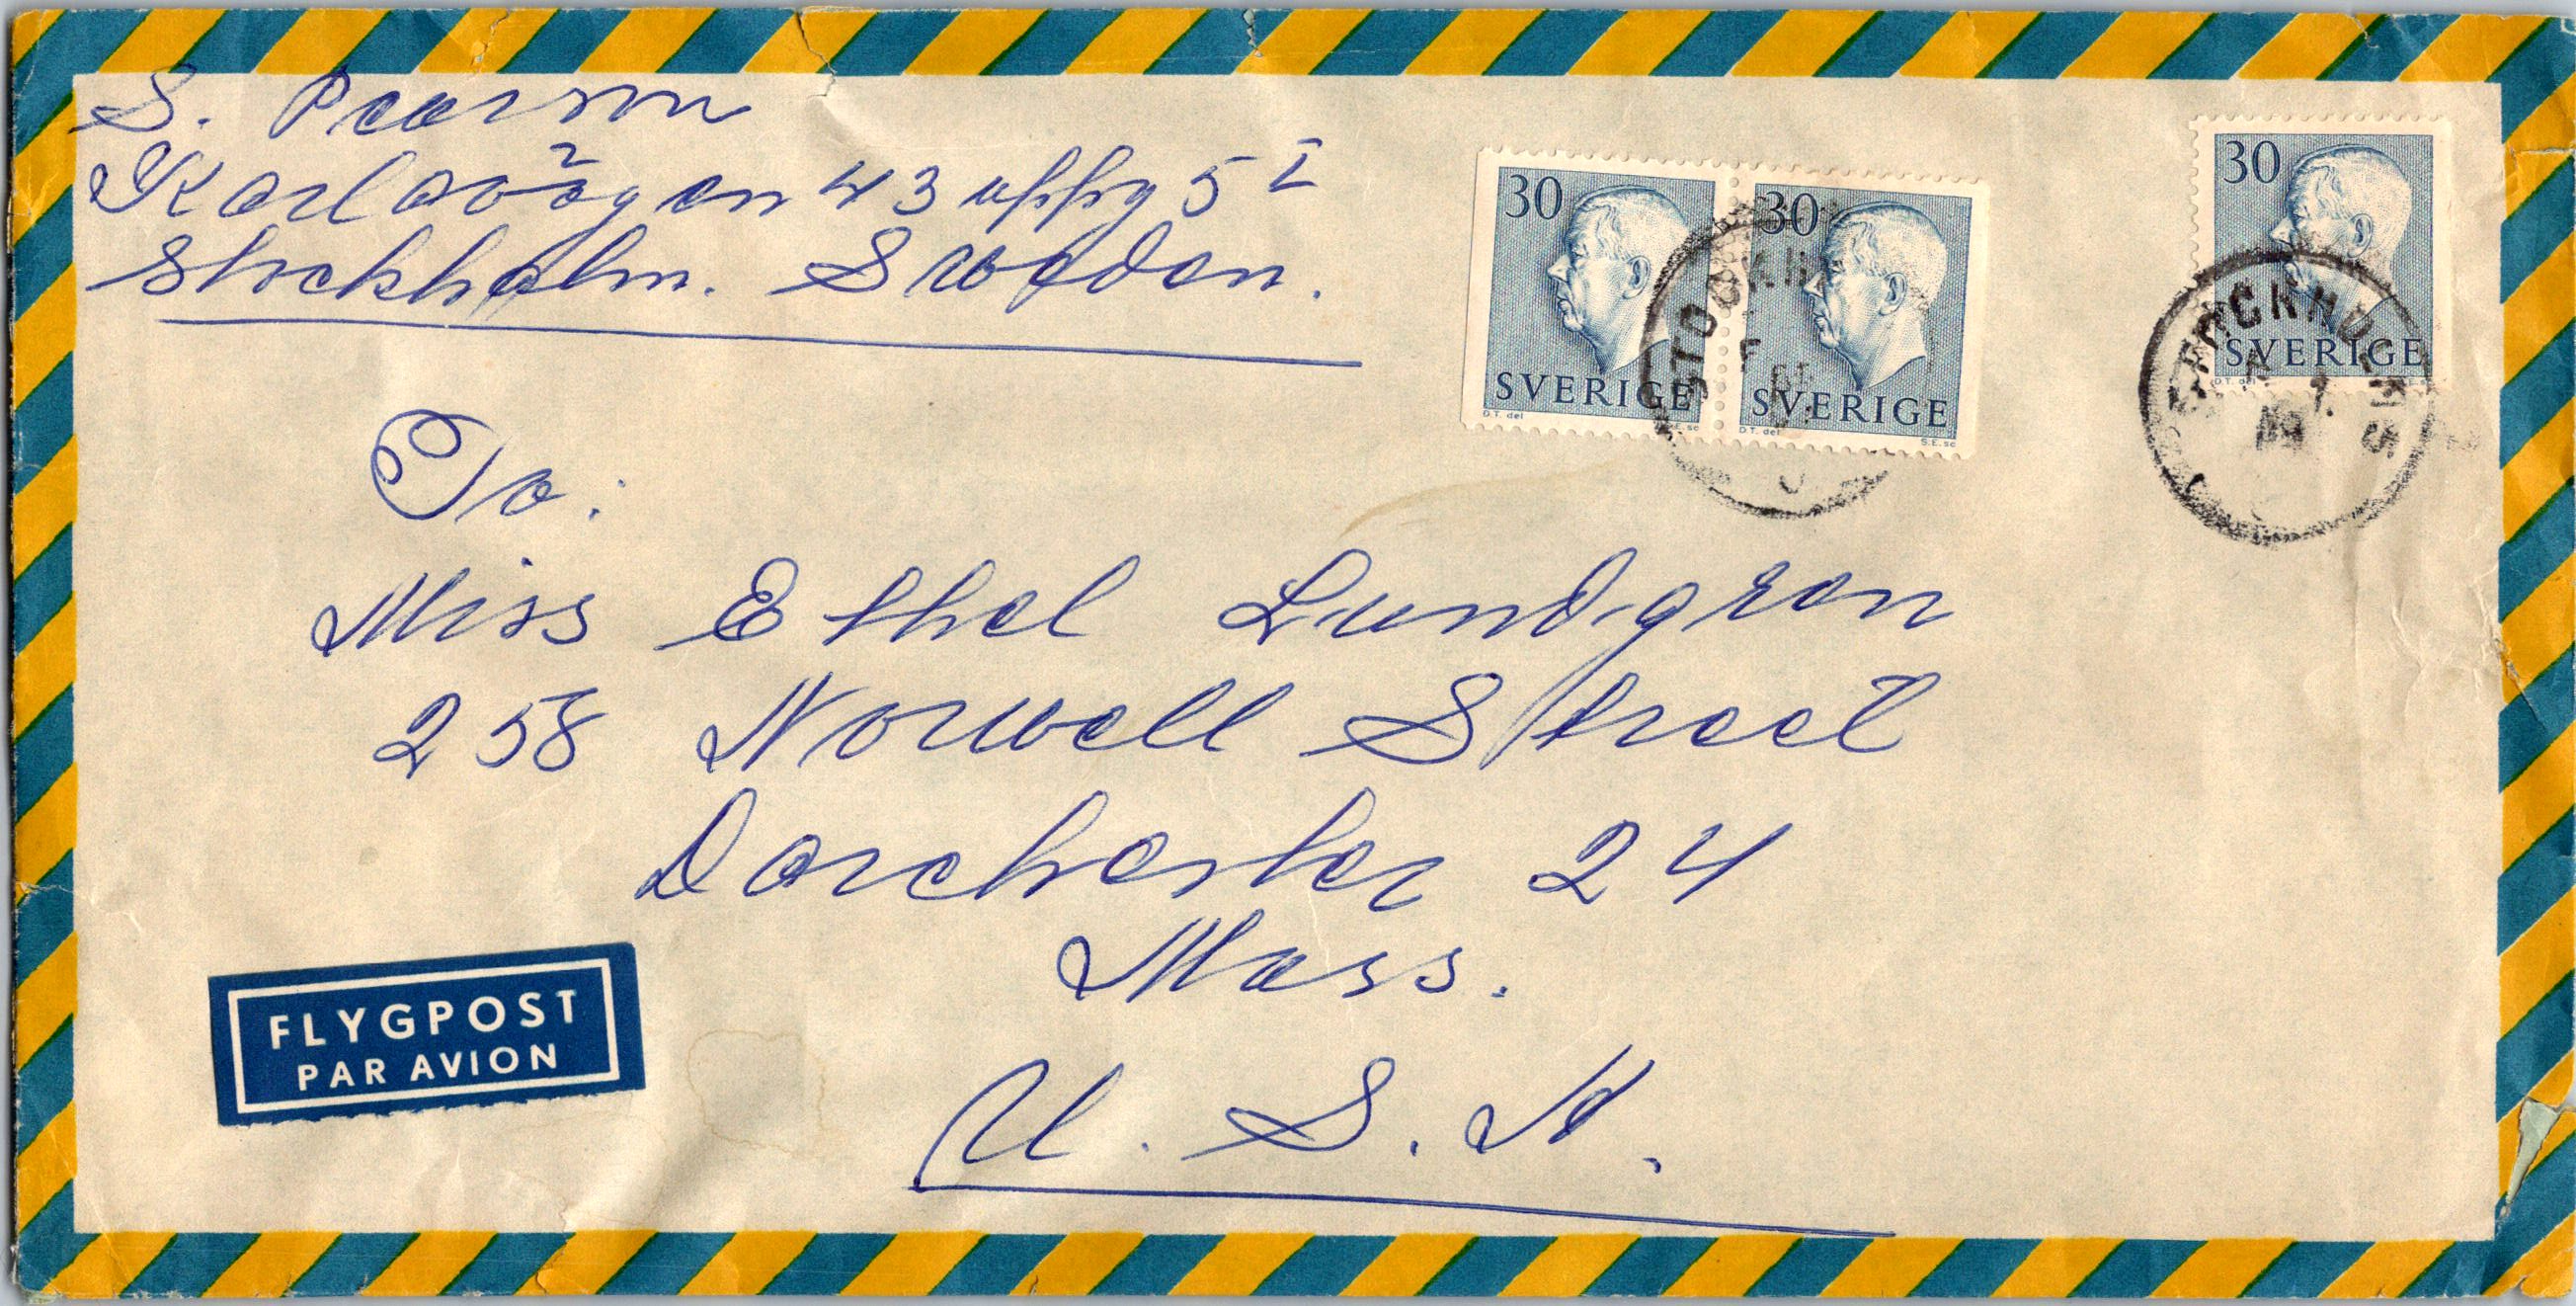 S. Pearson
Karlavägen 43 uppg 5 I
Stockholm. Sweden.
30
30
30
SVERIGE
SVERIGE
SVERIGE
D.T. del
S.E. sc
D.T. del
S.E. sc
D.T. del
STOCKH
STOCKHOLM
To:
Miss Ethel Lundgren
258 Norwell Street
Dorchester 24
Mass.
U. S. A.
FLYGPOST
PAR AVION